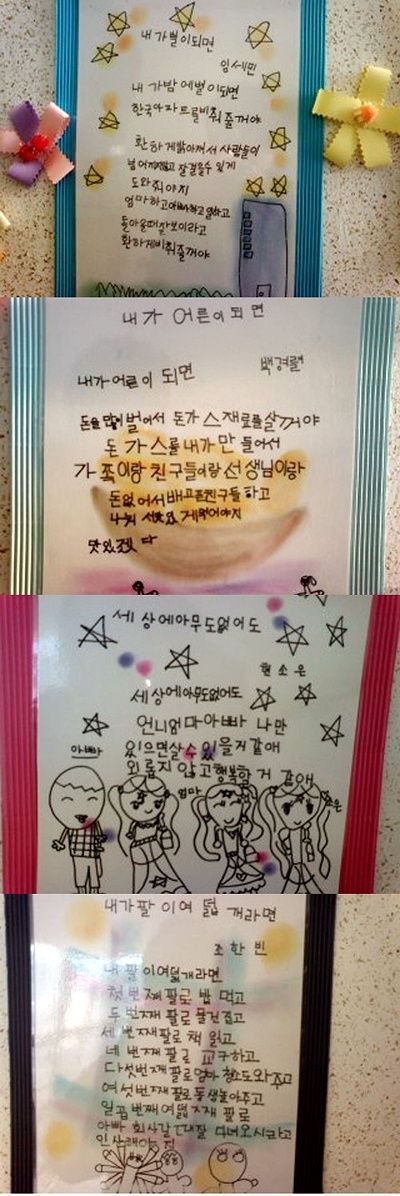 내가별이되면
임세민
내가밤에별이되면
한국아파트를비춰줄꺼야
환하게밝아져서사람들이
넘어지지않고 잘걸을수 있게
도와줘야지
엄마하고아빠하고일하고
돌아올때잘보이라고
환하게비춰줄꺼야
내가 어른이되면
백경렬
내가어른이 되면
돈을많이벌어서 돈가스재료를살꺼야
돈가스를내가만들어서
가족이랑친구들이랑선생님이랑
돈없어서배고픈친구들하고
맛있게먹어야지
맛있겠다
세상에아무도없어도
현소은
세상에아무도없어도
언니엄마아빠나만
있으면살수있을거같애
외롭지않고행복할거같애
아빠
엄마
내가팔이여덟개라면
조한빈
내팔이여덟개라면
첫번째팔로밥먹고
두번째팔로물건집고
세번째팔로책읽고
네번째팔로교구하고
다섯번째팔로엄마청소도와주고
여섯번째팔로동생놀아주고
일곱번째여덟째팔로
아빠회사갈때잘다녀오시라고
인사해야지